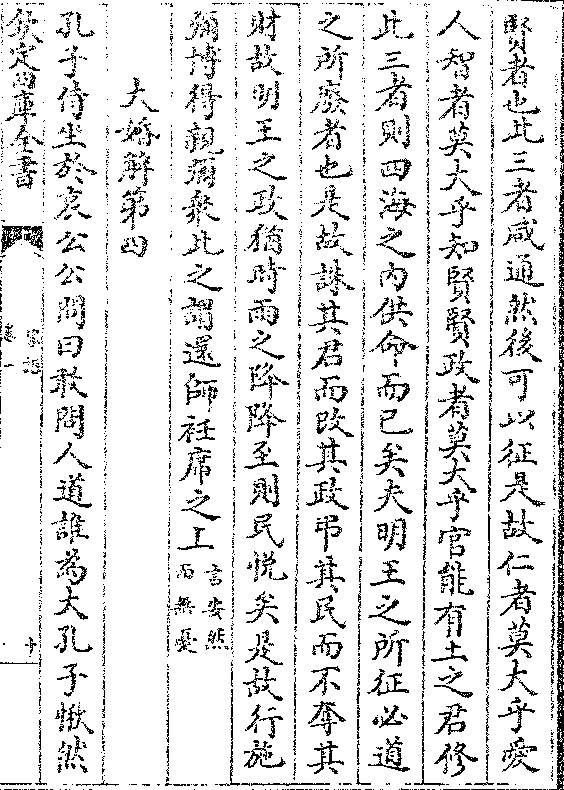 賢者也此三者咸通然後可以征是故仁者莫大乎愛
人智者莫大乎知賢賢政者莫大乎官能有土之君修
此三者則四海之内供命而已矣夫明王之所征必道
之所廢者也是故誅其君而改其政弔其民而不奪其
財故明王之政猶時雨之降降至則民悦矣是故行施
彌博得親彌衆此之謂還師衽席之上言安然而無憂
大婚解第四
孔子侍坐於哀公公問曰敢問人道誰為大孔子愀然
欽定四庫全書
家語
卷一
十